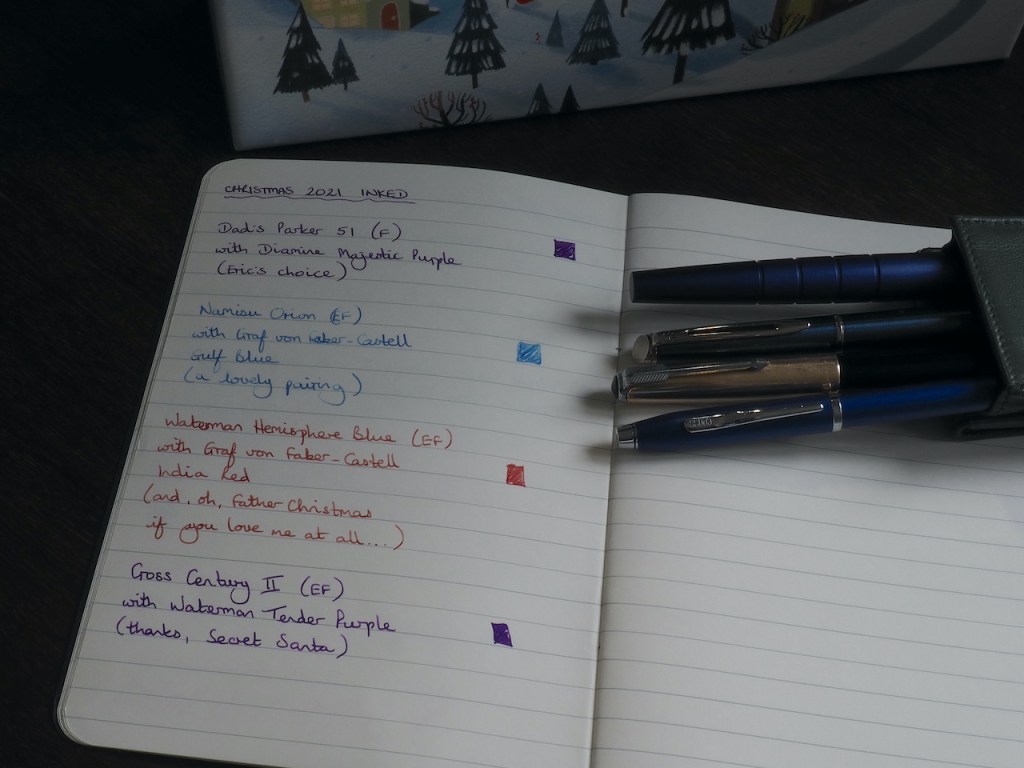 CHRISTMAS 2021 INKED
Dad's Parker 51 (F)
with Diamine Majestic Purple
(Eric's choice)
Namisu Orion (EF)
with Graf von Faber-Castell
Gulf Blue
(a lovely pairing)
Waterman Hemisphere Blue (EF)
with Graf von Faber-Castell
India Red
(and, oh, Father Christmas
if you love me at all...)
Cross Century II (EF)
with Waterman Tender Purple
(thanks, Secret Santa)